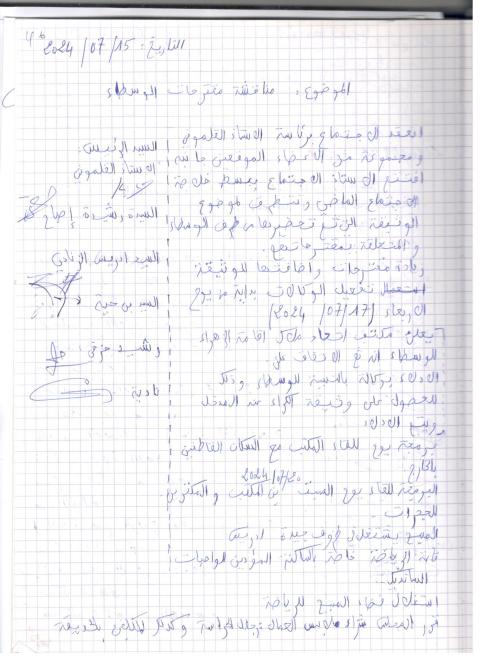 التاريخ: 2024/07/15
الموضوع: مناقشة مقترحات الوسطاء
انعقد الاجتماع برئاسة الأستاذ العلمونى
ومجموعة من الأعضاء الموقعين
افتتح الأستاذ الاجتماع ببسط خلاصة
الاجتماع الماضي وتطرق لموضوع
الوثيقة التي تم تحضيرها من طرف الوسطاء
والمتعلقة بمقترحاتهم.
زيادة مقترحات وإضافتها للوثيقة
تفعيل الوكالات بداية من يوم
الأربعاء (2024/07/17)
يعلن مكتب اتحاد ملاك إقامة الزهراء
للوسطاء أنه تم الاتفاق على
الإدلاء بوكالة بالنسبة للوسطاء وذلك
للحصول على وثيقة الكراء عند المدخل
ويتم الإدلاء
برمجة يوم للقاء المكتب مع السكان القاطنين
بالخارج.
2024/07/20
البرمجة للقاء يوم السبت بين المكتب والمكترين
المسبح يشتغل في ظروف جيدة
قاعة الرياضة خاصة بالساكنة المؤدين لواجبات
السانديك.
استغلال فضاء المسبح للرياضة
شراء ملابس العمال رجال الحراسة وكذلك المكلفين بالحديقة
السيد الرئيس:
الأستاذ العلمونى
السيدة رشيدة
السيد ادريس الزيادي
السيد بن حية
رشيد
نادية